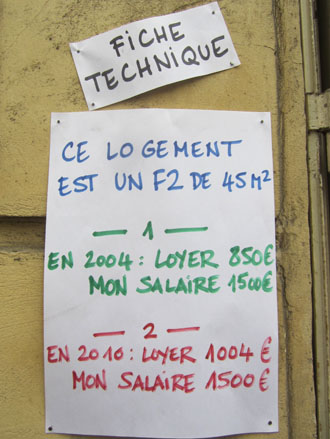 FICHE
TECHNIQUE
CE LOGEMENT
EST UN F2 DE 45 M²
— 1 —
EN 2004 : LOYER 850€
MON SALAIRE 1500€
— 2 —
EN 2010 : LOYER 1004 €
MON SALAIRE 1500 €